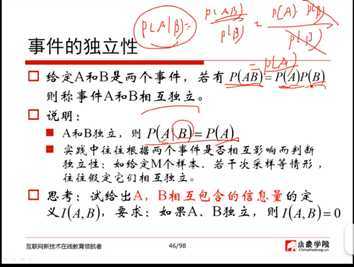 P(A|B)= P(AB)/P(B) = P(A) P(B)/P(B)
= P(A)
事件的独立性
给定A和B是两个事件,若有 P(AB)=P(A)P(B)
则称事件A和B相互独立。
说明:
A和B独立,则 P(A|B)=P(A)
实践中往往根据两个事件是否相互影响而判断
独立性:如给定M个样本、若干次采样等情形,
往往假定它们相互独立。
思考:试给出A,B相互包含的信息量的定
义I(A,B),要求:如果A、B独立,则I(A,B)=0
互联网新技术在线教育领航者
46/98
小象学院
ChinaHadoop.cn